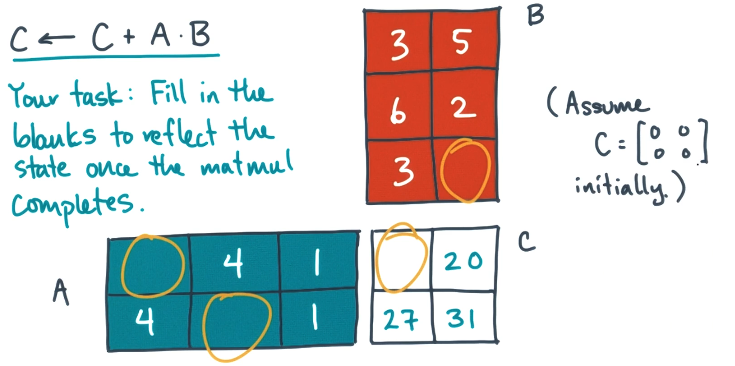 C ← C + A · B
B
Your task: Fill in the
blanks to reflect the
state once the matmul
completes.
3 5
6 2
3
(Assume
C = [0 0
0 0]
initially.)
A
4 1
4 1
C
20
27 31